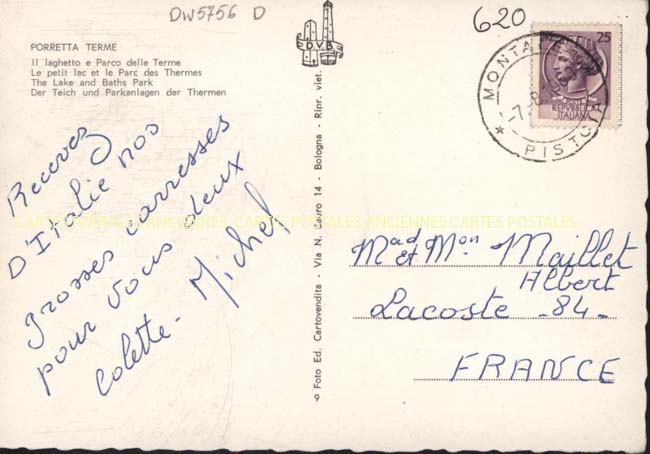 DW5756 D
620
PORRETTA TERME
Il laghetto e Parco delle Terme
Le petit lac et le Parc des Thermes
The Lake and Baths Park
Der Teich und Parkanlagen der Thermen
D.V.B.
25
POSTE
REPUBBLICA
ITALIANA
PISTOIA
Recevez
D'Italie nos
grosses carresses
pour vous deux
Colette - Michel
CARTES POSTALES ANCIENNES CARTES POSTALES
Foto Ed. Cartovendita - Via N. Sauro 14 - Bologna - Ripr. viet.
Mad et Mon Maillet
Albert
Lacoste - 84 -
FRANCE